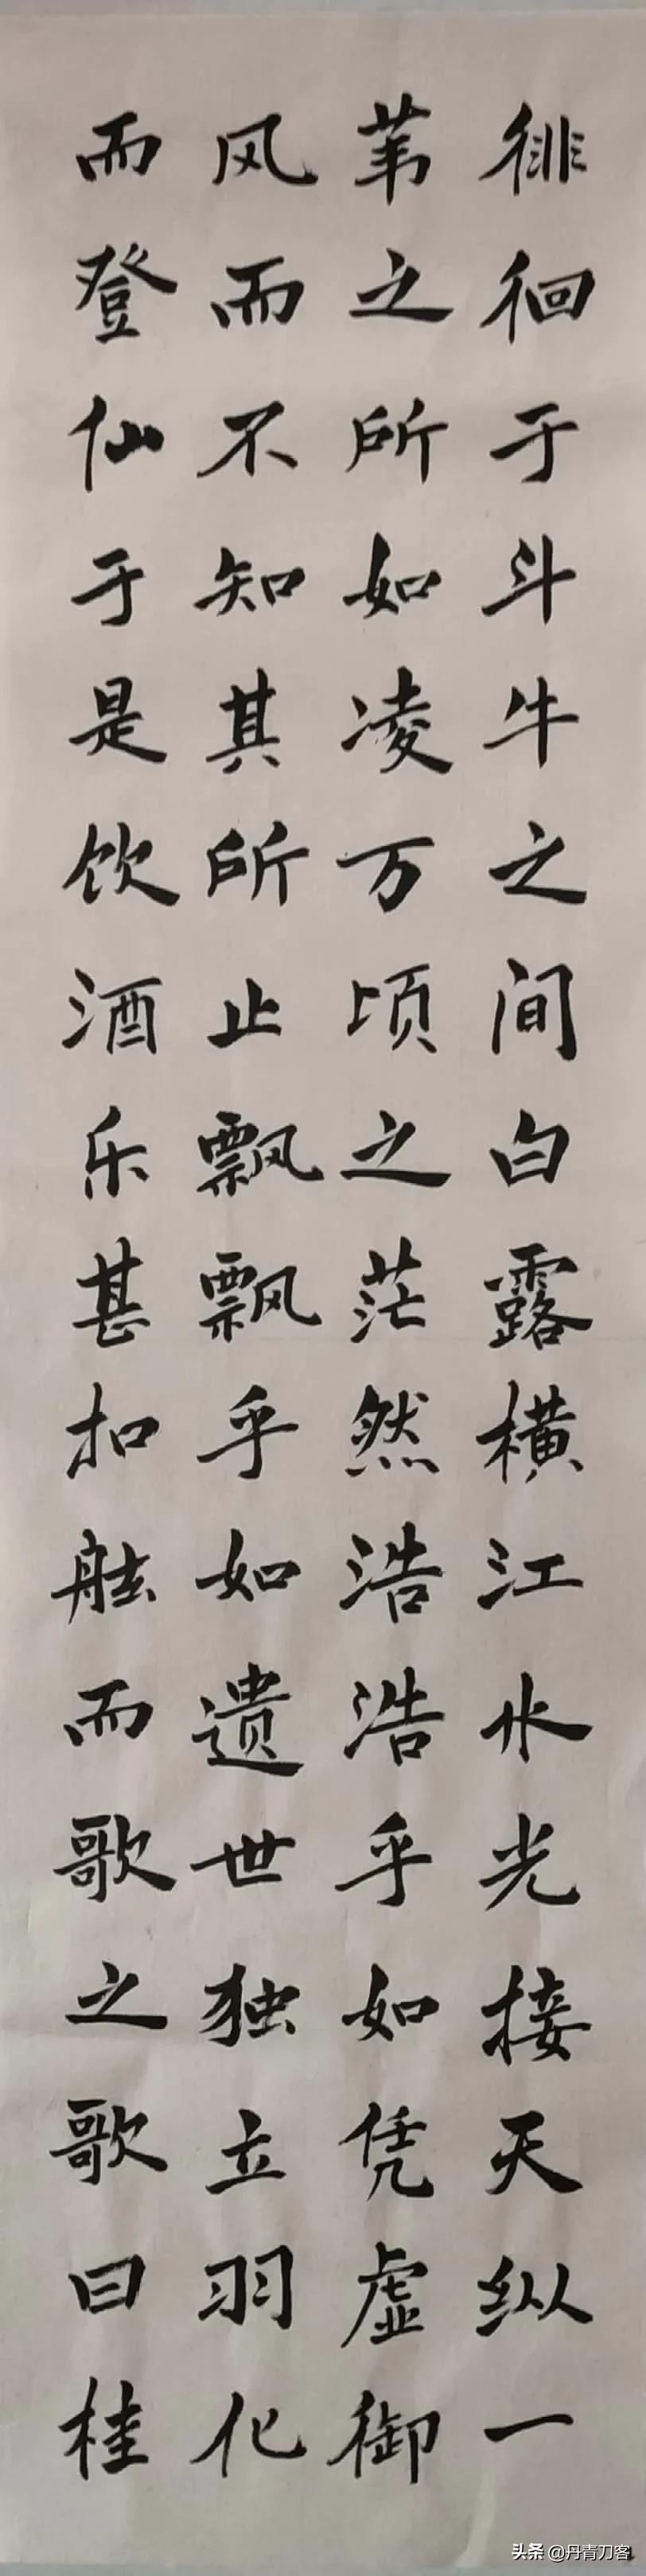 徘徊于斗牛之间白露横江水光接天纵一
苇之所如凌万顷之茫然浩浩乎如凭虚御
风而不知其所止飘飘乎如遗世独立羽化
而登仙于是饮酒乐甚扣舷而歌之歌曰桂
头条 @丹青刀客